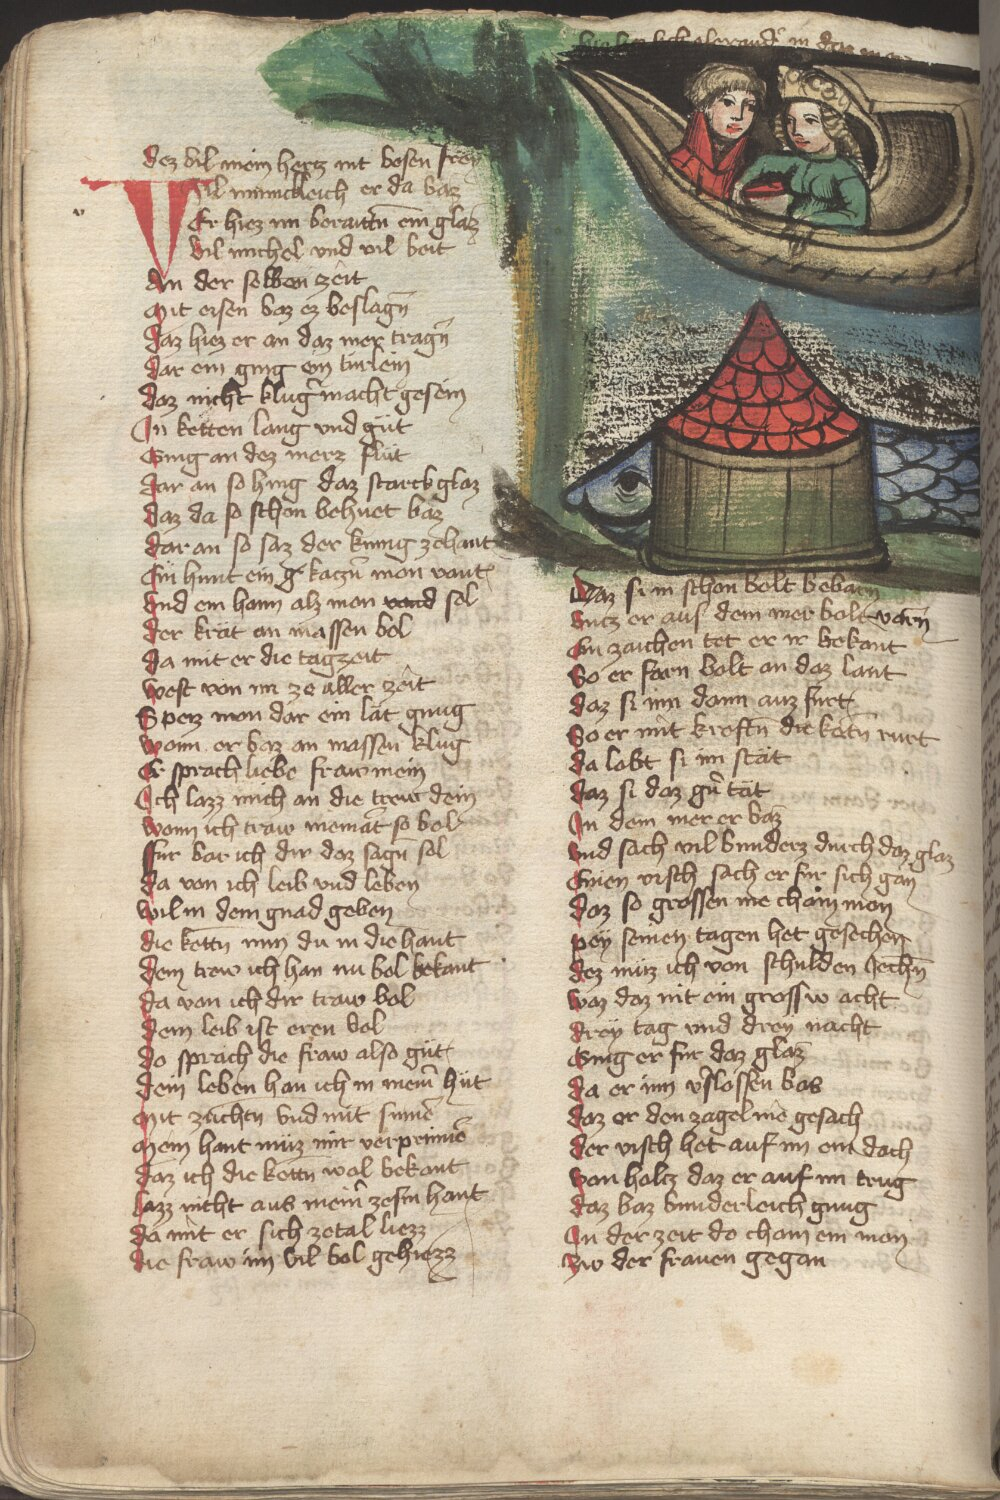 dez vil mein hertz nit bosen frey
Vil minnickleich er da baz
Er hiez im beraitten ein glaz
vil michel vnd vil beit
An der selben zeit
Mit eisen baz ez beslagn̄
Daz hiez er an daz mer tragn̄
Dar ein ging ein türlein
daz nicht klug͛ macht gesein
Ein ketten lang vnd gut
Ging an dez merz flut
Dar an so hing daz starck glaz
daz da so schon behuet baz
dar an so saz der kunig zehant
Ein hunt ein kaczn̄ mon vant
Vnd ein hann alz mon sol
der krät an massen bol
da mit er die tagzeit
west von im ze aller zeit
Speiz mon dar ein lät gnug
wann er baz an massen klug
Er sprach liebe fraw mein
Ich lazz mich an die trew dein
wann ich traw niemāt so bol
fur bar ich dir daz sagn̄ sol
da von ich leib vnd leben
wil in dein gnad geben
die kettn̄ nim du in die hant
dein trew ich han nu bol bekant
da von ich dir traw bol
dein leib ist eren vol
do sprach die fraw also güt
dein leben han ich in mein͛ hüt
Mit züchtn̄ vnd mit sinnē
Mein hant müz mir verprinnē
daz ich die kettn̄ wol bekant
lazz nicht aus mein͛ zesm hant
da mit er sich zetal liezz
die fraw im vil bol gehiezz
Daz si in schon bolt bebarn
vncz er aus dem mer bolt varn
Ein zaichen tet er ir bekant
So er farn bolt an daz lant
daz si inn dann auz furt
So er mit kreftn̄ die kettn̄ rurt
da lobt si im stät
daz si daz gn̄ tät
In dem mer er baz
vnd sach vil bunderz durch daz glaz
Einen visch sach er für sich gan
daz so grossen nie chain mon
pey seinen tagen het gesechen
dez müz ich von schulden Jechn̄
waz daz nit ein grossw acht
drey tag vnd drey nacht
Ging er für daz glaz
da er inn v͛slossen bas
daz er den zagel nie gesach
der visch het auf im ein dach
von holcz daz er auf im trug
daz baz bunderleich gnug
In der zeit do cham ein man
Zw der frauen gegan